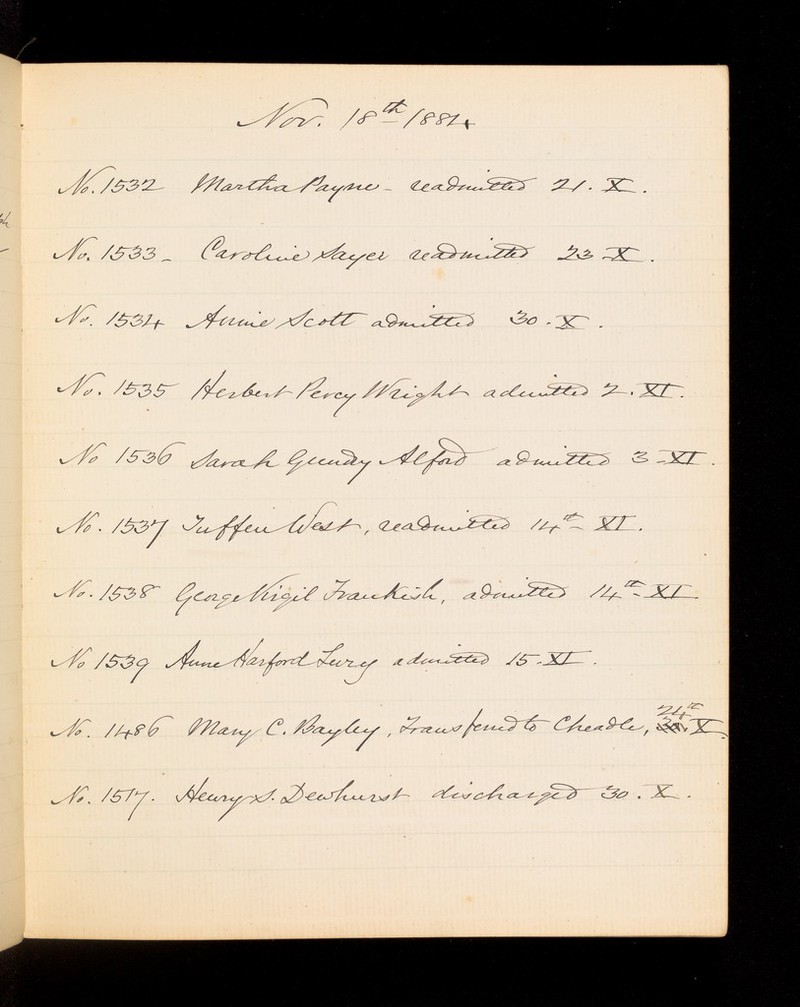 Nov. 18th 1884
No. 1532 Martha Payne - readmitted 21. X.
No. 1533 - Caroline Sayer readmitted 23 - X.
No. 1534 Annie Scott admitted 30. X.
No. 1535 Herbert Percy Wright admitted 2. XI.
No 1536 Sarah Gundy Alford admitted 3 - XI.
No. 1537 Tuffen West, readmitted 14th - XI.
No. 1538 George Virgil Frankish, admitted 14th - XI
No 1539 Anne Harford admitted 15. XI.
No. 1486 Mary C. Bayley, Transferred to Cheadle, 24th X.
No. 1517. Henry S. Dewhurst discharged 30. X.